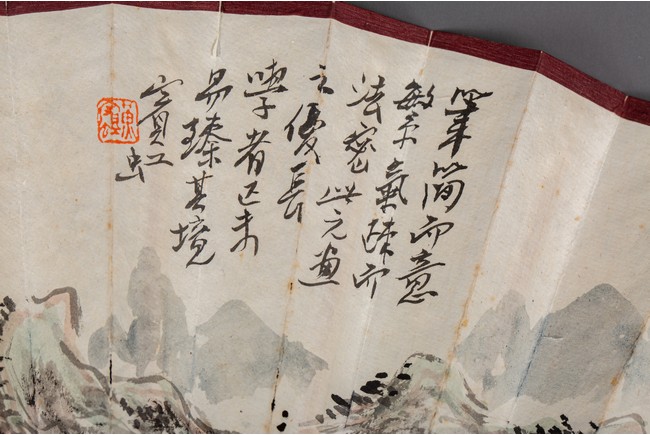 筆簡而意
繁氣疎而
法密此元畫
之優長
學者正未
易臻其境
賓虹